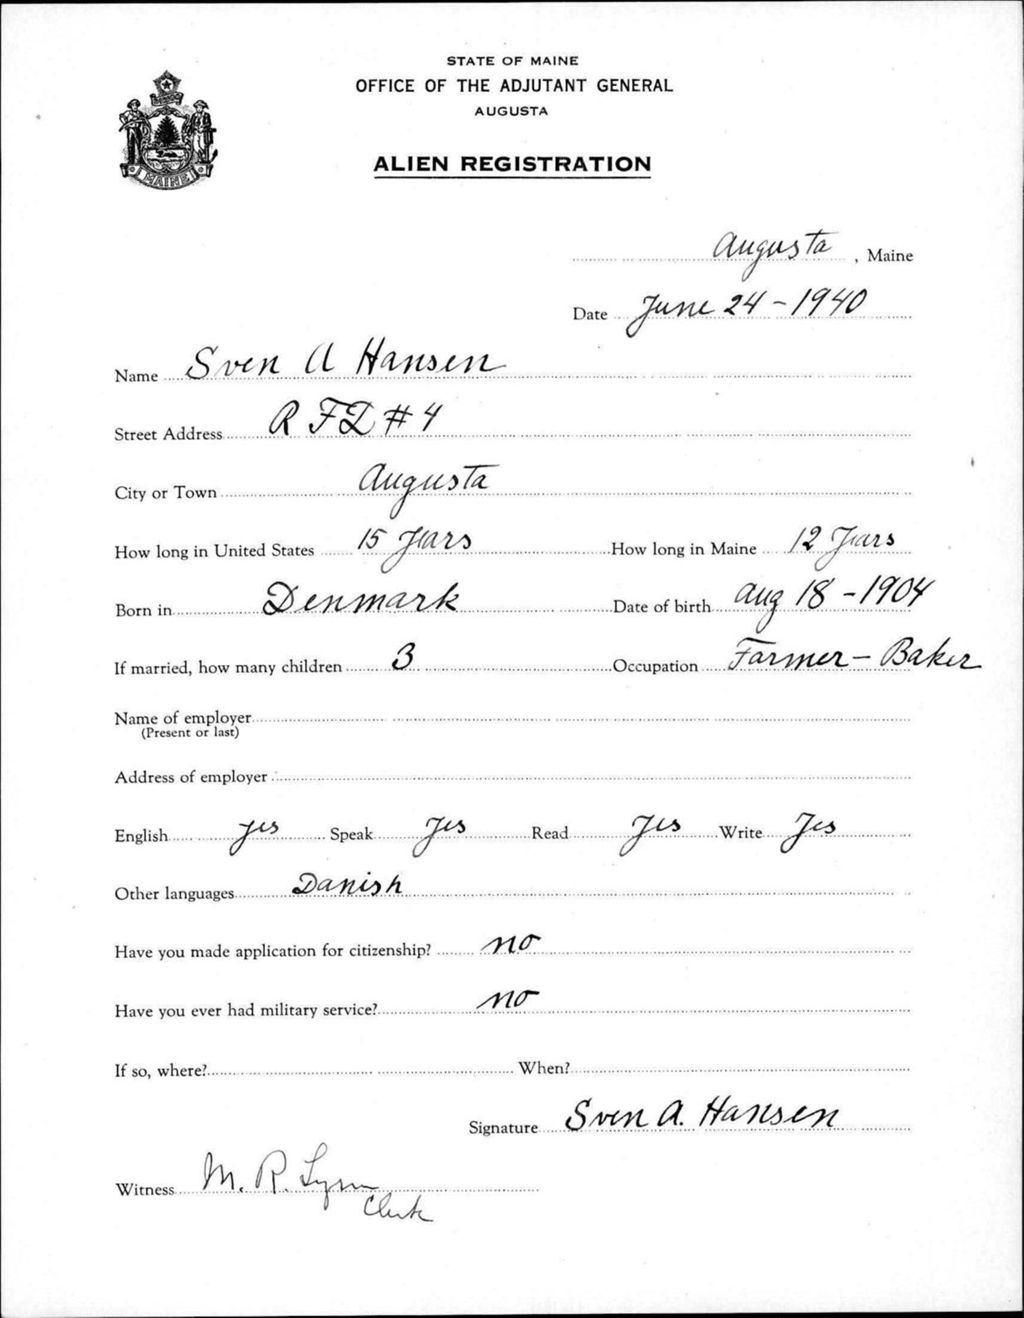 STATE OF MAINE
OFFICE OF THE ADJUTANT GENERAL
AUGUSTA
ALIEN REGISTRATION
MAINE
Augusta, Maine
Date June 24-1940
Name Sven A Hansen
Street Address R F D #4
City or Town Augusta
How long in United States 15 Years How long in Maine 12 Years
Born in Denmark Date of birth Aug 18-1904
If married, how many children 3 Occupation Farmer-Baker
Name of employer
(Present or last)
Address of employer
English yes Speak Yes Read Yes Write Yes
Other languages Danish
Have you made application for citizenship? no
Have you ever had military service? no
If so, where? When?
Signature Sven A. Hansen
Witness M. R. Lynn
Clerk